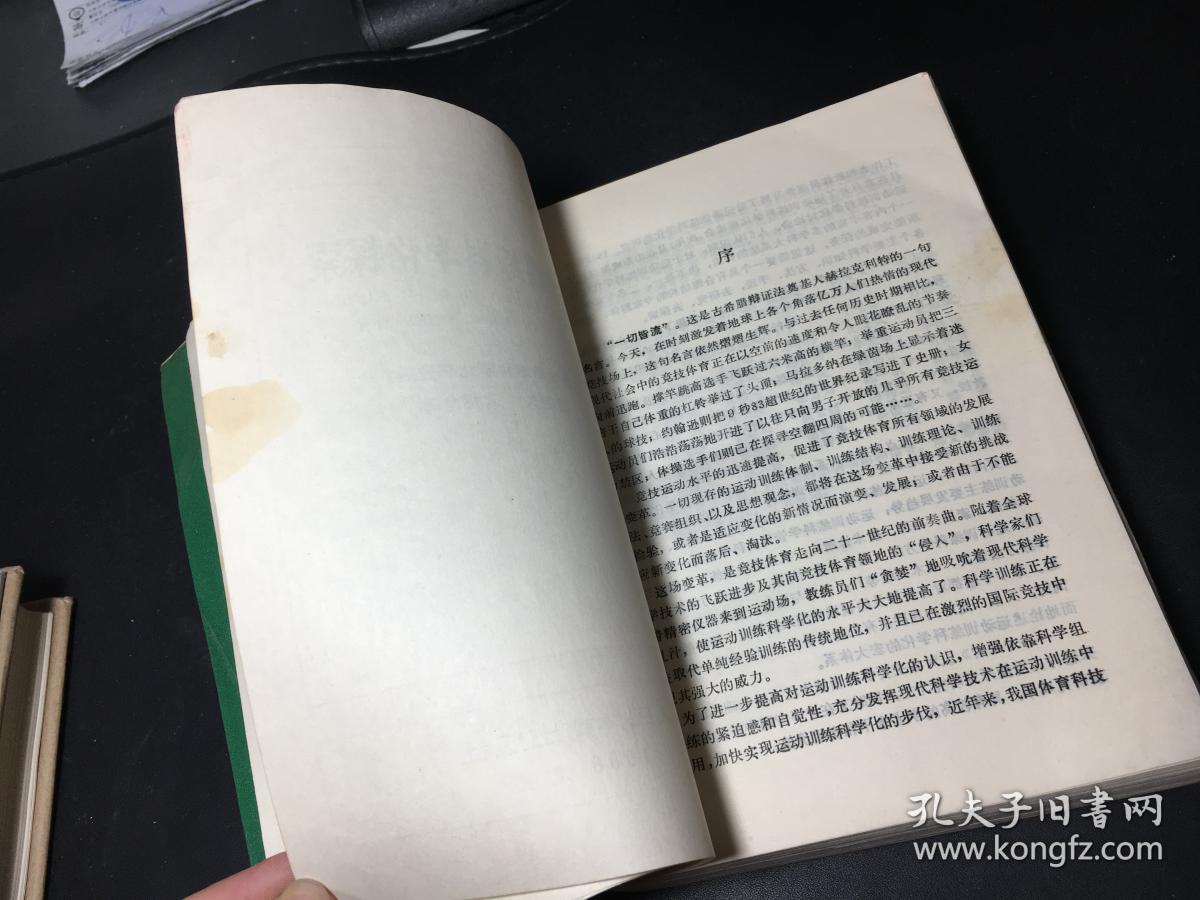 序
“一切皆流”。这是古希腊辩证法奠基人赫拉克利特的一句
名言。今天，在时刻激发着地球上各个角落亿万人们热情的现代
竞技场上，这句名言依然熠熠生辉。与过去任何历史时期相比，
现代社会中的竞技体育正在以空前的速度和令人眼花瞭乱的节奏
向前迅跑。撑竿跳高选手飞跃过六米高的横竿；举重运动员把三
于自己体重的杠铃举过了头顶；马拉多纳在绿茵场上显示着迷
人的球技；约翰逊则把9秒83超世纪的世界纪录写进了史册；女
运动员们浩浩荡荡地开进了以往只向男子开放的几乎所有竞技运
禁区；体操选手们则已在探寻空翻四周的可能……。
竞技运动水平的迅速提高，促进了竞技体育所有领域的发展
变革。一切现存的运动训练体制、训练结构、训练理论、训练
法、竞赛组织、以及思想观念，都将在这场变革中接受新的挑战
检验，或者是适应变化的新情况而演变、发展；或者由于不能
应新变化而落后、淘汰。
这场变革，是竞技体育走向二十一世纪的前奏曲。随着全球
学技术的飞跃进步及其向竞技体育领地的“侵入”，科学家们
精密仪器来到运动场，教练员们“贪婪”地吸吮着现代科学
乳汁，使运动训练科学化的水平大大地提高了。科学训练正在
取代单纯经验训练的传统地位，并且已在激烈的国际竞技中
其强大的威力。
为了进一步提高对运动训练科学化的认识，增强依靠科学组
练的紧迫感和自觉性，充分发挥现代科学技术在运动训练中
用，加快实现运动训练科学化的步伐，近年来，我国体育科技
孔夫子旧书网
www.kongfz.com